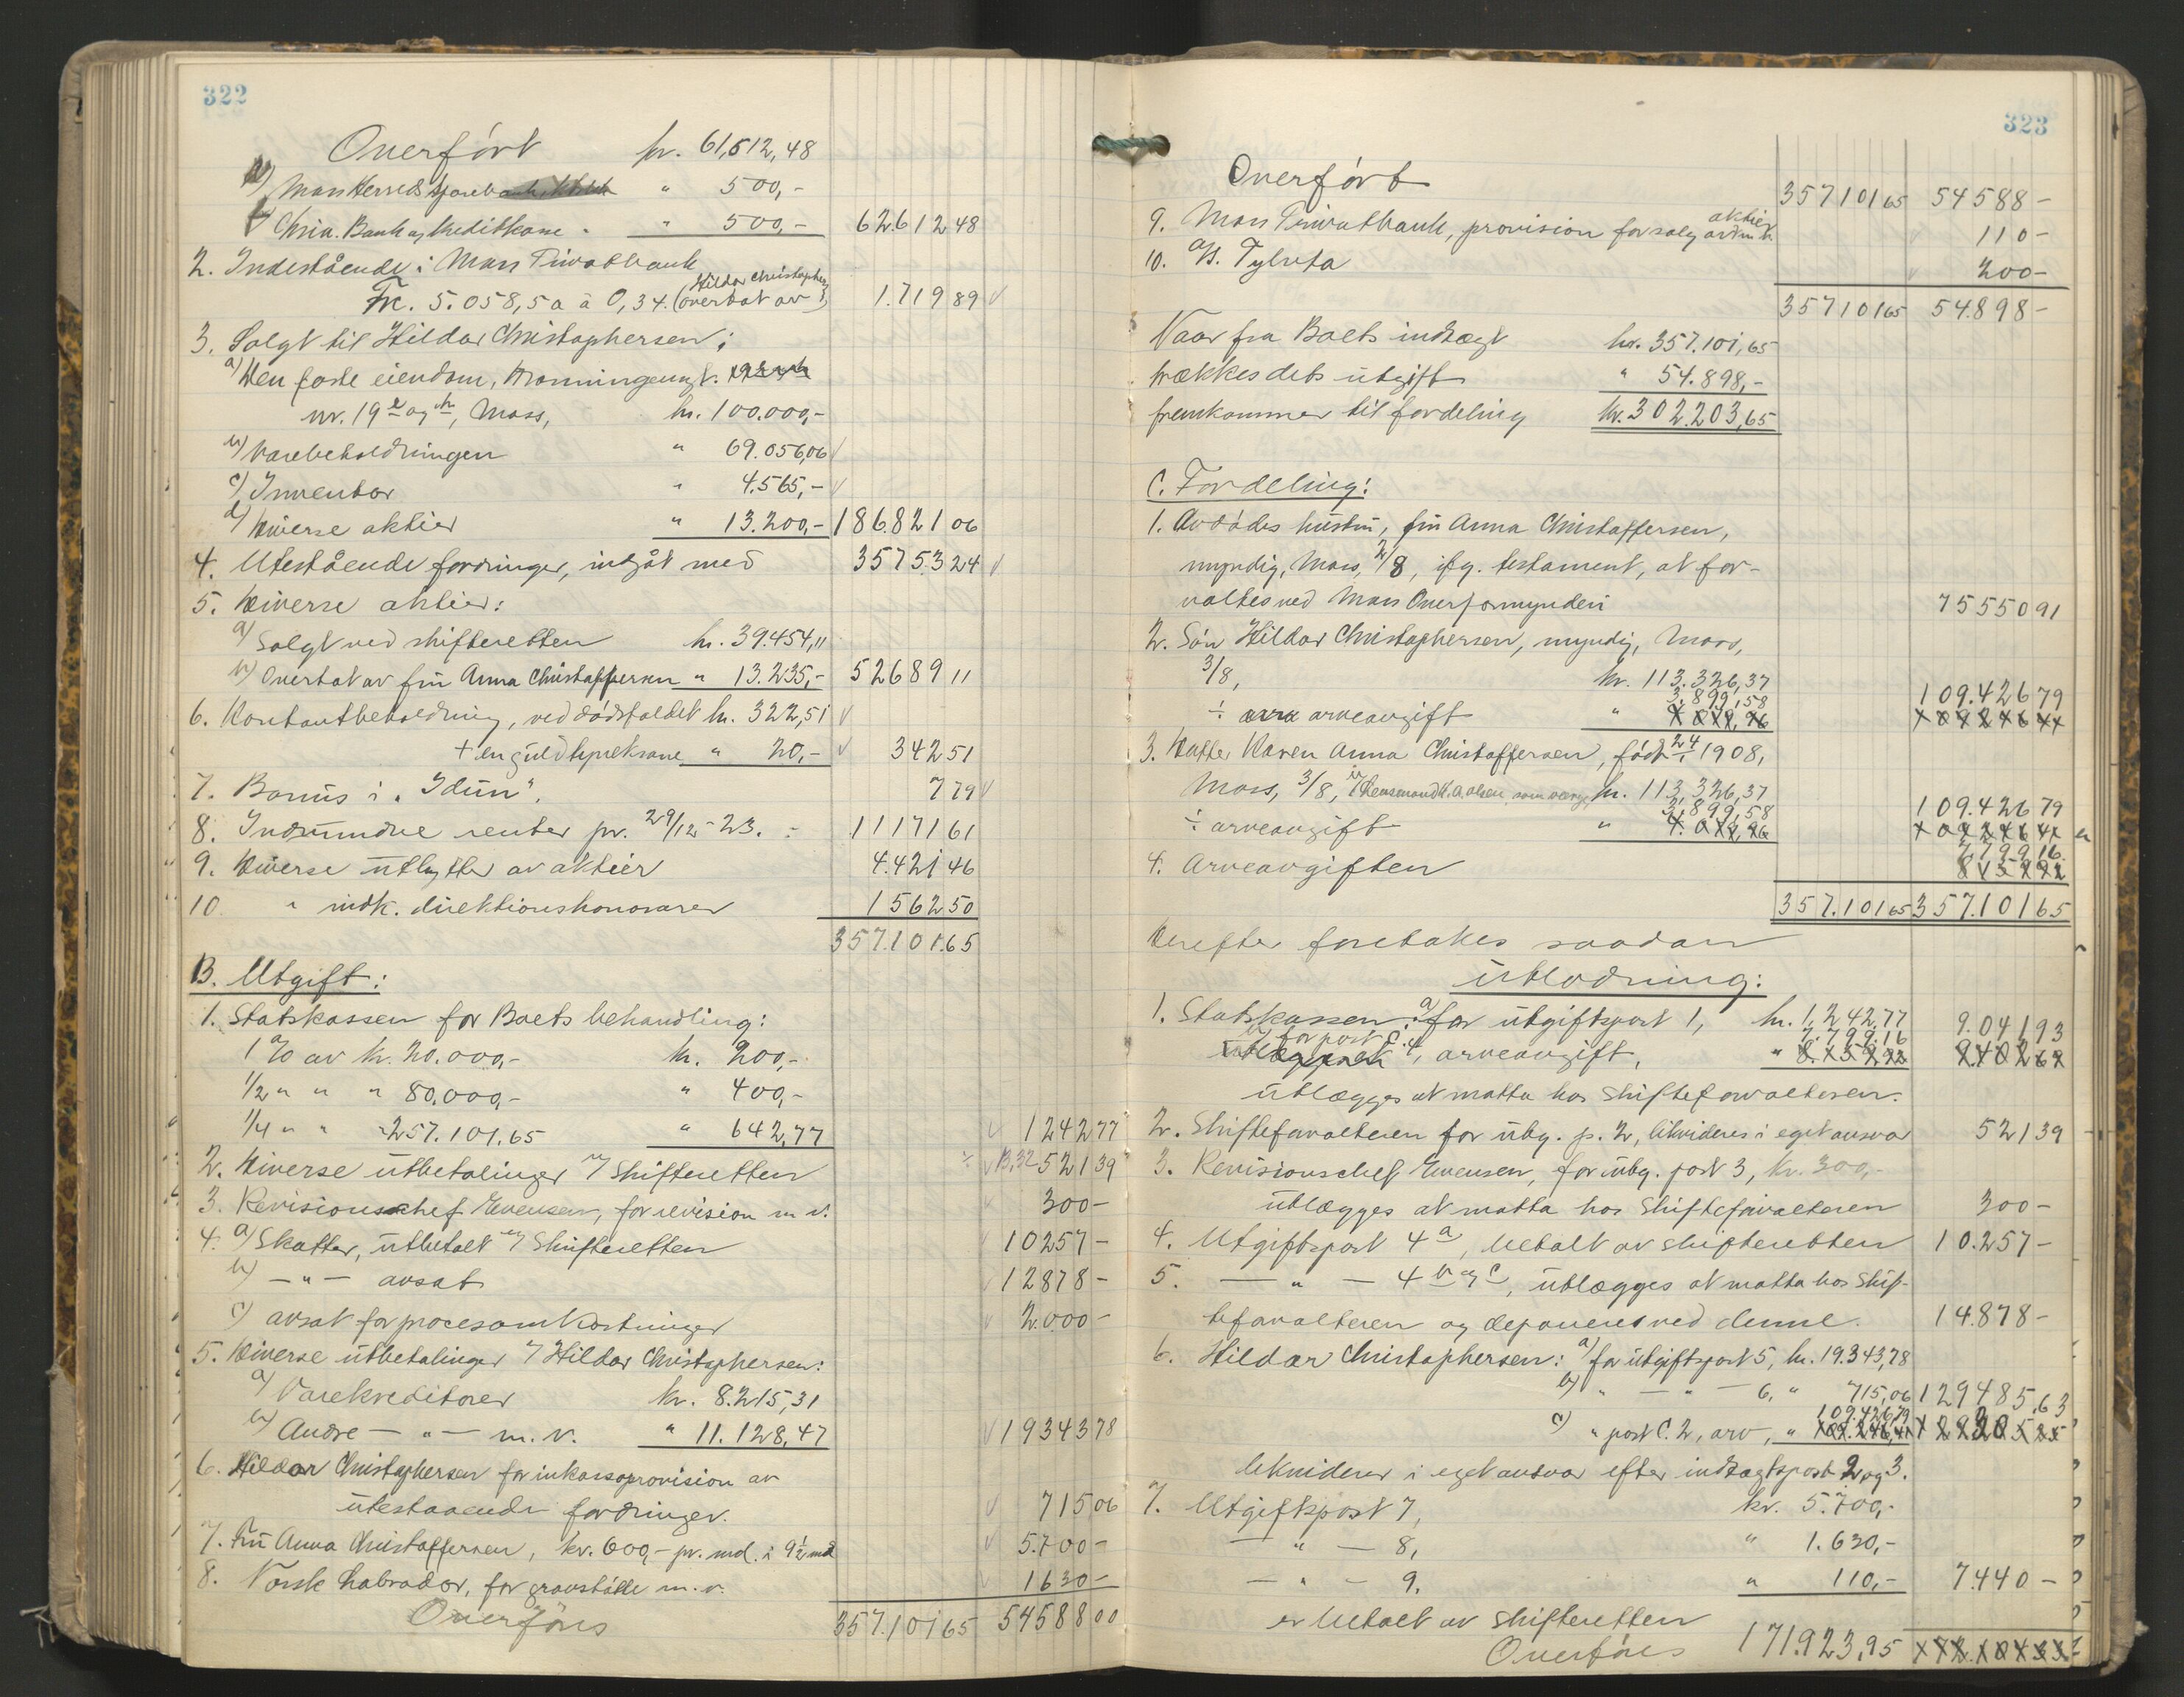 322
Overført kr. 61,512,48
a) Moss Herreds Sparebank " 500,-
b) Chria. Bank og Kreditkasse " 500,- 62.612 48
2. Indestående i Moss Privatbank
Hildar Christophersen
Frc. 5.058,50 à 0,34. (overtat av 1.719 89
3. Solgt til Hildar Christophersen:
a) Den faste eiendom, Dronningensgt.
nr. 19 a og b, Moss, kr. 100.000,-
b) Varebeholdningen " 69.056,06
c) Inventar " 4.565,-
d) Diverse aktier " 13.200,- 186821 06
4. Utestående fordringer, indgåt med 35753 24
5. Diverse aktier:
a) Solgt ved skifteretten kr. 39.454,11
b) Overtat av fru Anna Christoffersen " 13.235,- 52689 11
6. Kontantbeholdning, ved dødsfaldet kr. 322,51
+ en guld tyvekrone " 20,- 342 51
7. Bonus i "Idun". 7 79
8. Indvundne renter pr. 29/12-23. 11171 61
9. Diverse utbytter av aktier 4.421 46
10 " indk. direktionshonorarer 1562 50
357.101.65
B. Utgift:
1. Statskassen for Boets behandling:
1 % av kr. 20.000,- kr. 200,-
1/2 " " " 80.000,- " 400,-
1/4 " " " 257.101,65 " 642,77 1242 77
2. Diverse utbetalinger v/ Skifteretten 521 39
3. Revisionschef Evensen, for revision m.v. 300-
4. a) Skatter, utbetalt v/ Skifteretten 10257-
b) - " - avsat 12878-
c) avsat for procesomkostninger 2.000-
5. Diverse utbetalinger v/ Hildar Christophersen:
a) Varekreditorer kr. 8.215,31
b) Andre - " - m.v. " 11.128,47 19343 78
6. Hildar Christophersen for inkassoprovision av
utestaaende fordringer. 715 06
7. Fru Anna Christoffersen, kr. 600,- pr. md. i 9 1/2 md 5.700-
8. Norsk Labrador, for gravstøtte m.v. 1630-
Overføres 357.101 65 54588 00
323
Overført 357101 65 54588-
aktier
9. Moss Privatbank, provision for salg av 110-
10. A/S. 200-
357101 65 54.898-
Naar fra Boets indtægt kr. 357.101,65
trækkes dets utgift " 54.898,-
fremkommer til fordeling kr. 302.203,65
C. Fordeling:
1. Avdødes hustru, fru Anna Christoffersen,
myndig, Moss, 2/8, ifg. testament, at for-
valtes ved Moss Overformynderi 75550 91
2. Søn Hildar Christophersen, myndig, Moss,
3/8, kr. 113.326,37
3,899,58 109.426 79
÷ arveavgift "
3. Datter Karen Anna Christoffersen, født 1908,
Moss, 3/8, v/ Lensmand som verge, kr. 113,326,37
3,899,58 109.426 79
÷ arveavgift "
7,799 16
4. Arveavgiften
357.101 65 357.101 65
Derefter foretakes saadan
utlodning:
1. Statskassen: a) for utgiftspost 1, kr. 1,242,77 9.041 93
7,799,16
b) for post C. 4, arveavgift, "
utlægges at motta hos Skifteforvalteren.
2. Skifteforvalteren for utg. p. 2, likvideres i eget ansvar 521 39
3. Revisionschef Evensen, for utg. post 3, kr. 300,-
utlægges at motta hos Skifteforvalteren 300-
4. Utgiftspost 4 a, betalt av skifteretten 10.257-
5. - " - 4 b og c, utlægges at motta hos Skif-
teforvalteren og deponeres ved denne. 14.878-
6. Hildar Christophersen: a) for utgiftspost 5, kr. 19.343,78
b) " - " - 6, " 715,06 129485,63
109.426,79
c) " post C. 2, arv, "
likviderer i eget ansvar efter indtægtspost 2 og 3.
7. Utgiftspost 7, kr. 5.700,-
- " - 8, " 1.630,-
- " - 9, " 110,- 7.440-
er betalt av skifteretten
Overføres 171.923,95